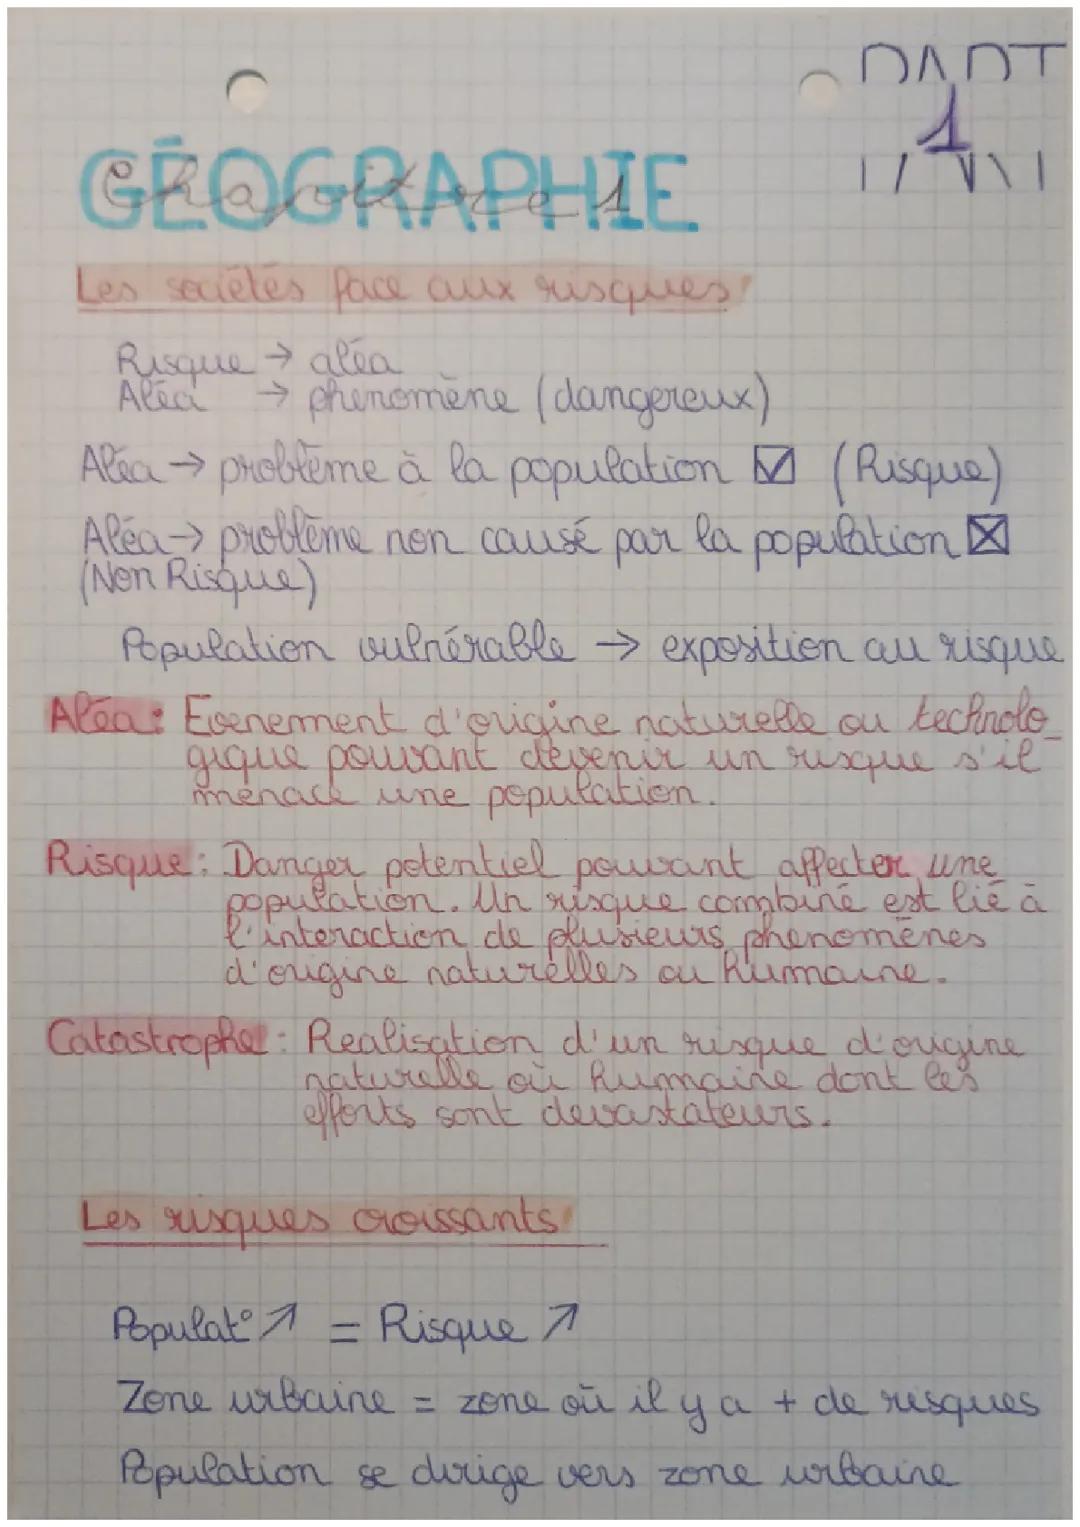 PART
1
GÉOGRAPHIE
Chapitre 1
Les sociétés face aux risques
Risque → aléa
Aléa → phenomène (dangereux)
Aléa → problème à la population ☑ (Risque)
Aléa → problème non causé par la population ☒
(Non Risque)
Population vulnérable → exposition au risque
Aléa : Evenement d'origine naturelle ou technolo_
gique pouvant devenir un risque s'il
menace une population.
Risque : Danger potentiel pouvant affecter une
population. Un risque combiné est lié à
l'interaction de plusieurs phenomènes
d'origine naturelles ou humaine.
Catastrophe : Realisation d'un risque d'origine
naturelle où humaine dont les
efforts sont devastateurs.
Les risques croissants
Populat° ↗ = Risque ↗
Zone urbaine = zone où il y a + de risques
Population se dirige vers zone urbaine